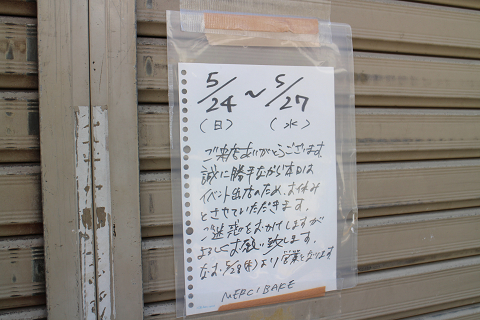 5/24 ~ 5/27
(日) (水)
ご来店ありがとうございます。
誠に勝手ながら本日は
イベント出店のため、お休み
とさせていただきます。
ご迷惑をおかけしますが
よろしくお願い致します。
なお、5/28(木)より営業となります
MERCI BAKE